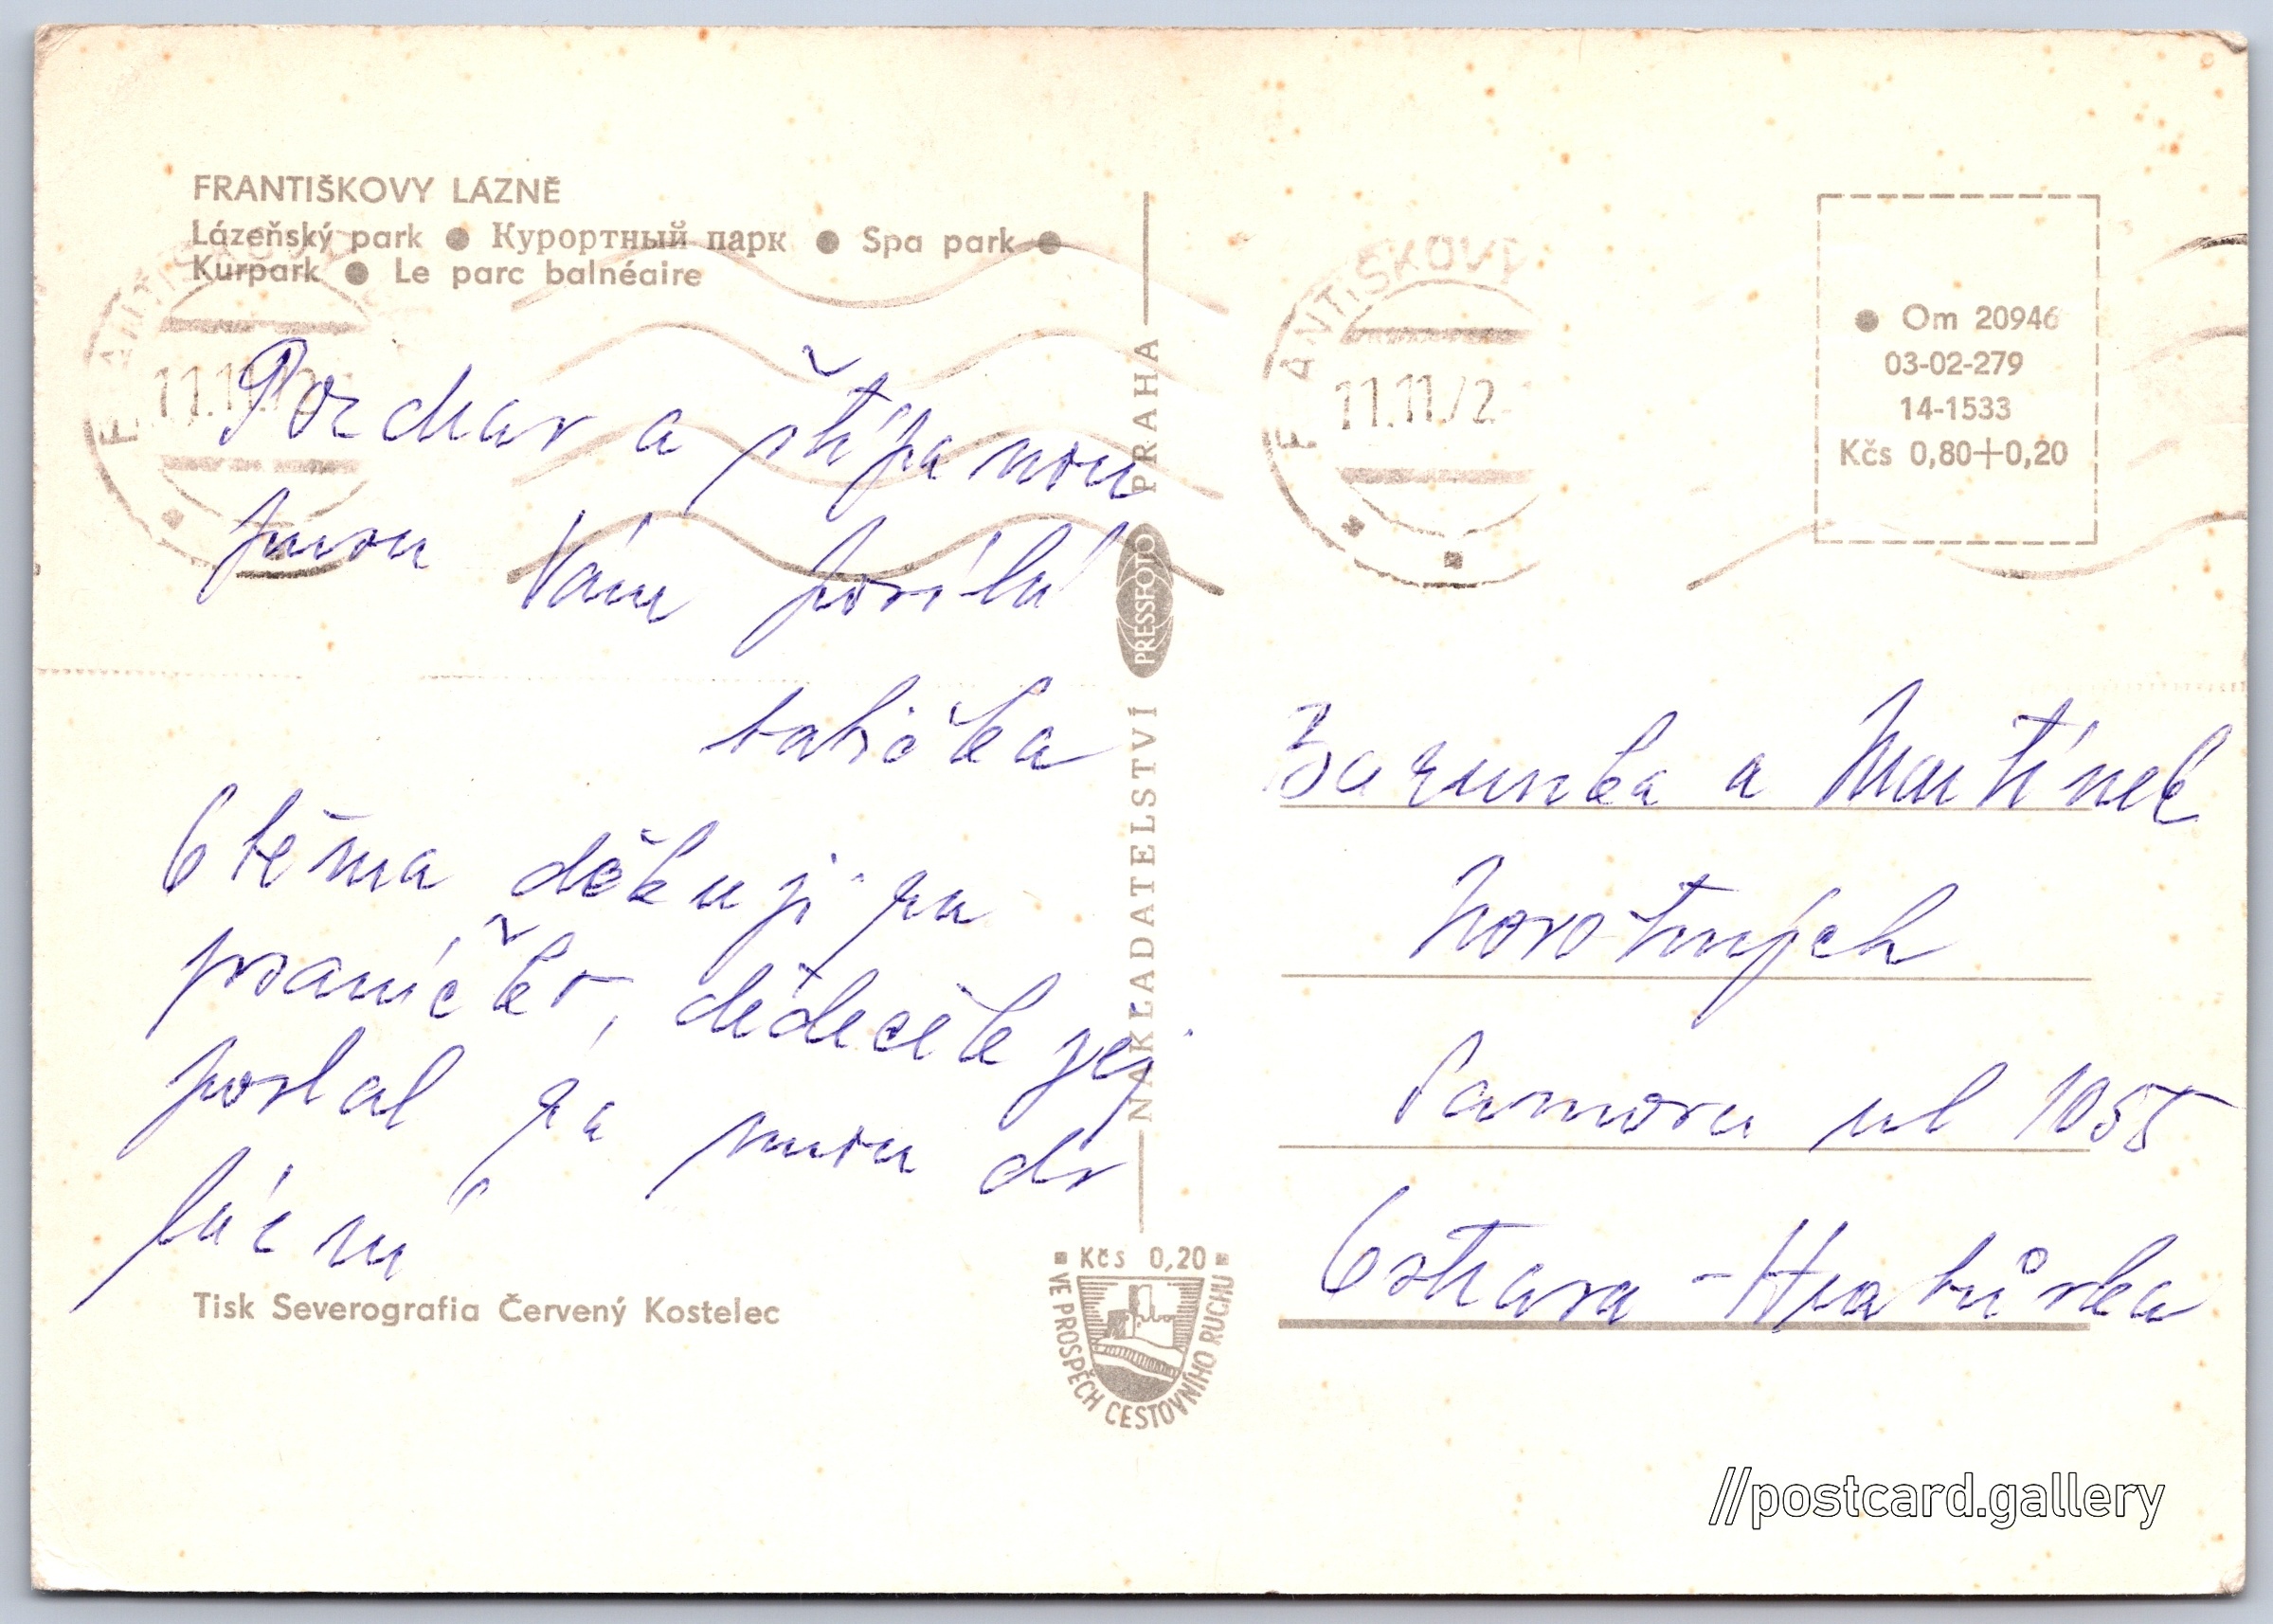 FRANTIŠKOVY LÁZNĚ
Lázeňský park ● Курортный парк ● Spa park ●
Kurpark ● Le parc balnéaire
Pozdrav a štípanou
pusu Vám posílá
babička
Oběma děkuji za
psaníčko, dědeček jej
poslal za mnou do
lázní
Tisk Severografia Červený Kostelec
NAKLADATELSTVÍ PRESSFOTO PRAHA
Kčs 0,20
VE PROSPĚCH CESTOVNÍHO RUCHU
F ANTIŠKOVY
11.11.72
● Om 20946
03-02-279
14-1533
Kčs 0,80+0,20
Barunka a Martínek
Novotných
ul 1055
Ostrava - Hrabůvka
//postcard.gallery